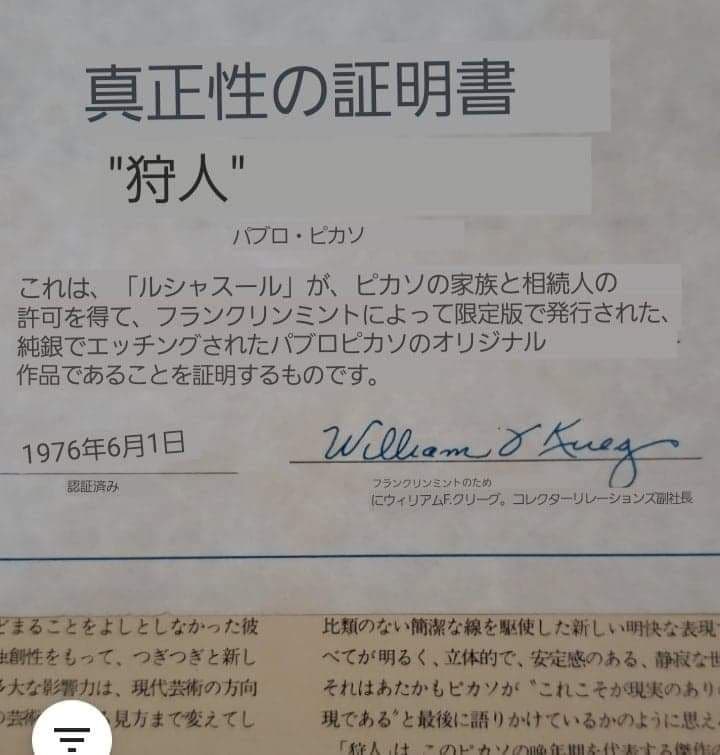 真正性の証明書
"狩人"
パブロ・ピカソ
これは、「ルシャスール」が、ピカソの家族と相続人の
許可を得て、フランクリンミントによって限定版で発行された、
純銀でエッチングされたパブロピカソのオリジナル
作品であることを証明するものです。
1976年6月1日
William F Krieg
認証済み
フランクリンミントのため
にウィリアムF.クリーグ。コレクターリレーションズ副社長
どまることをよしとしなかった彼
独創性をもって、つぎつぎと新し
多大な影響力は、現代芸術の方向
見方まで変えてし
比類のない簡潔な線を駆使した新しい明快な表現
べてが明るく、立体的で、安定感のある、静寂な世
それはあたかもピカソが〝これこそが現実のあり
現である〟と最後に語りかけているかのように思え
「狩人」は、このピカソの晩年期を代表する傑作